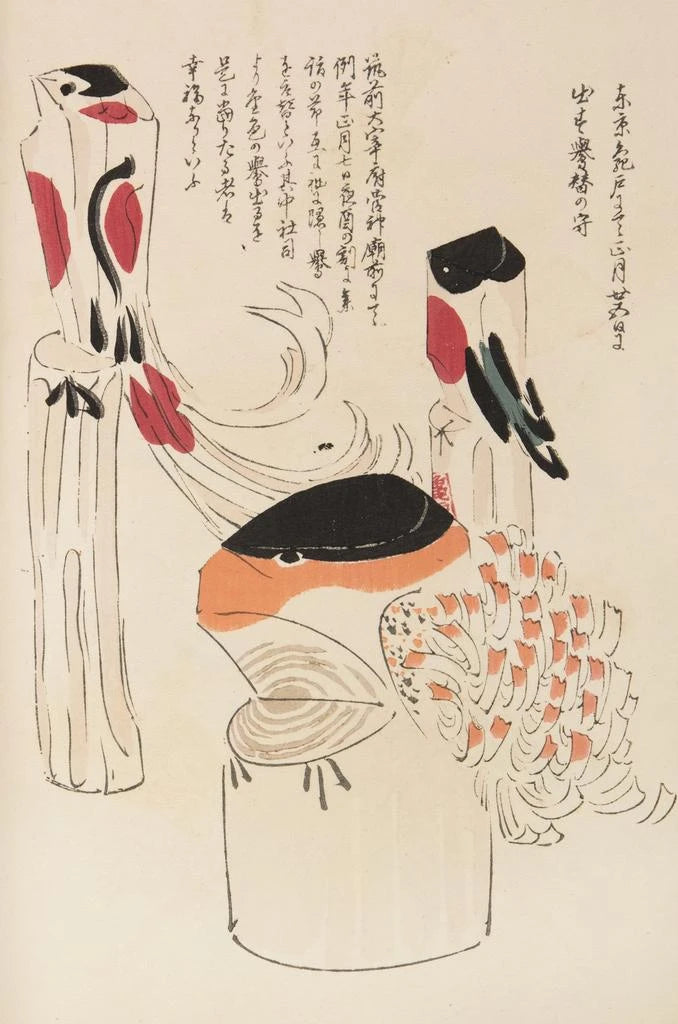 東京亀戸にて正月廿五日に
出す鷽替の守
筑前大宰府菅神廟前にて
例年正月七日夜酉の刻に集
詣の節互に袖に隠し鷽
を取替といふ其中社司
より金色の鷽出るを
是に当りたる者は
幸福ありといふ